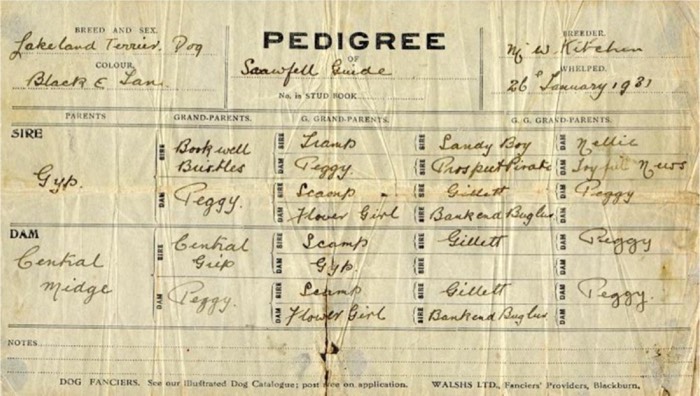 BREED AND SEX.
Lakeland Terrier, Dog
COLOUR.
Black & Tan
PEDIGREE
OF
Scawfell Guide
No. in STUD BOOK
BREEDER.
Mr W. Kitchen
WHELPED.
26th January 1931
PARENTS GRAND-PARENTS. G. GRAND-PARENTS. G. G. GRAND-PARENTS.
SIRE
Gyp.
SIRE Bookwell Bustles
DAM Peggy.
SIRE Tramp
DAM Peggy.
SIRE Scamp
DAM Flower Girl
SIRE Sandy Boy DAM Nellie
SIRE Prospect Pirate DAM Joyful News
SIRE Gillett DAM Peggy
SIRE Bankend Bugler DAM
DAM
Central Midge
SIRE Central Grip
DAM Peggy.
SIRE Scamp
DAM Gyp.
SIRE Scamp
DAM Flower Girl
SIRE Gillett DAM Peggy
SIRE DAM
SIRE Gillett DAM Peggy.
SIRE Bankend Bugler DAM
NOTES
DOG FANCIERS. See our Illustrated Dog Catalogue; post free on application. WALSHS LTD., Fanciers' Providers, Blackburn.